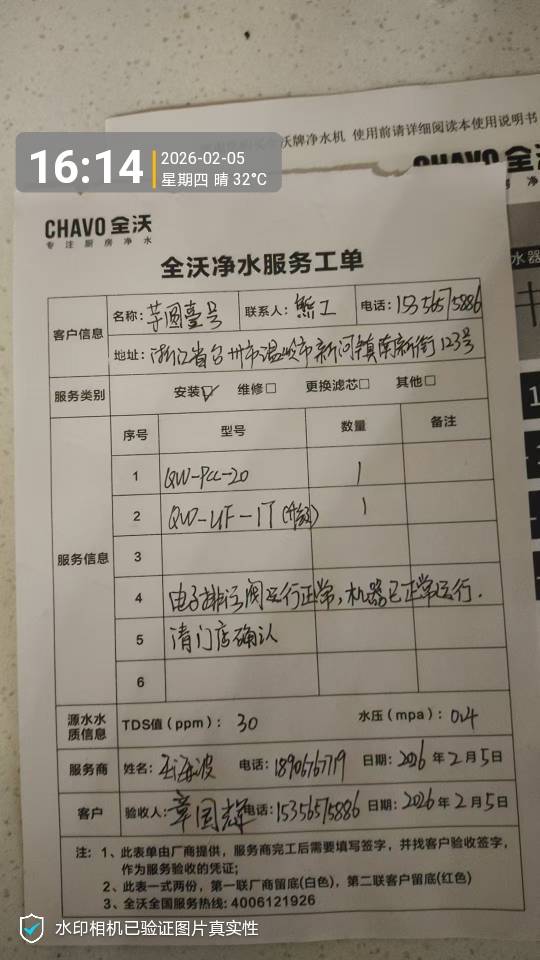 沃牌净水机 使用前请详细阅读本使用说明书
CHAVO 全
16:14
2026-02-05
星期四 晴 32°C
CHAVO 全沃
专注厨房净水
水器
全沃净水服务工单
客户信息
名称：芋圆壹号 联系人：熊工 电话：15356575886
地址：浙江省台州市温岭市新河镇南新街123号
服务类别 安装☑ 维修□ 更换滤芯□ 其他□
服务信息
序号 型号 数量 备注
1 QW-PCC-20 1
2 QW-UF-1T(升级) 1
3
4 电子排污阀运行正常，机器已正常运行.
5 请门店确认
6
源水水质信息 TDS值（ppm）： 30 水压（mpa）： 0.4
服务商 姓名： 海波 电话：18906767719 日期：2026年2月5日
客户 验收人：章国辉 电话：15356575886 日期：2026年2月5日
注：1、此表单由厂商提供，服务商完工后需要填写签字，并找客户验收签字，
作为服务验收的凭证；
2、此表一式两份，第一联厂商留底(白色)，第二联客户留底(红色)
3、全沃全国服务热线: 4006121926
水印相机已验证图片真实性